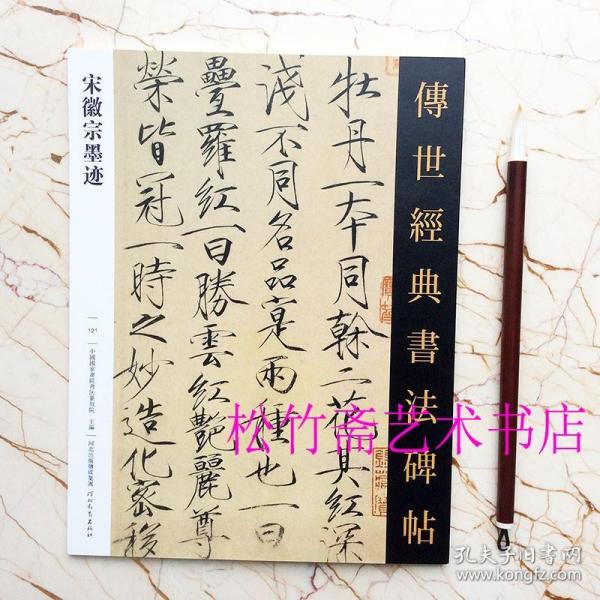 傳世經典書法碑帖
牡丹一本同榦二花其紅深
淺不同名品寔兩種也一曰
疊羅紅一曰勝雲紅艷麗尊
榮皆冠一時之妙造化密移
宋徽宗墨迹
121
中國國家畫院書法篆刻院 主編
河北出版傳媒集團
河北教育出版社
松竹斋艺术书店
孔夫子旧书网
www.kongfz.com